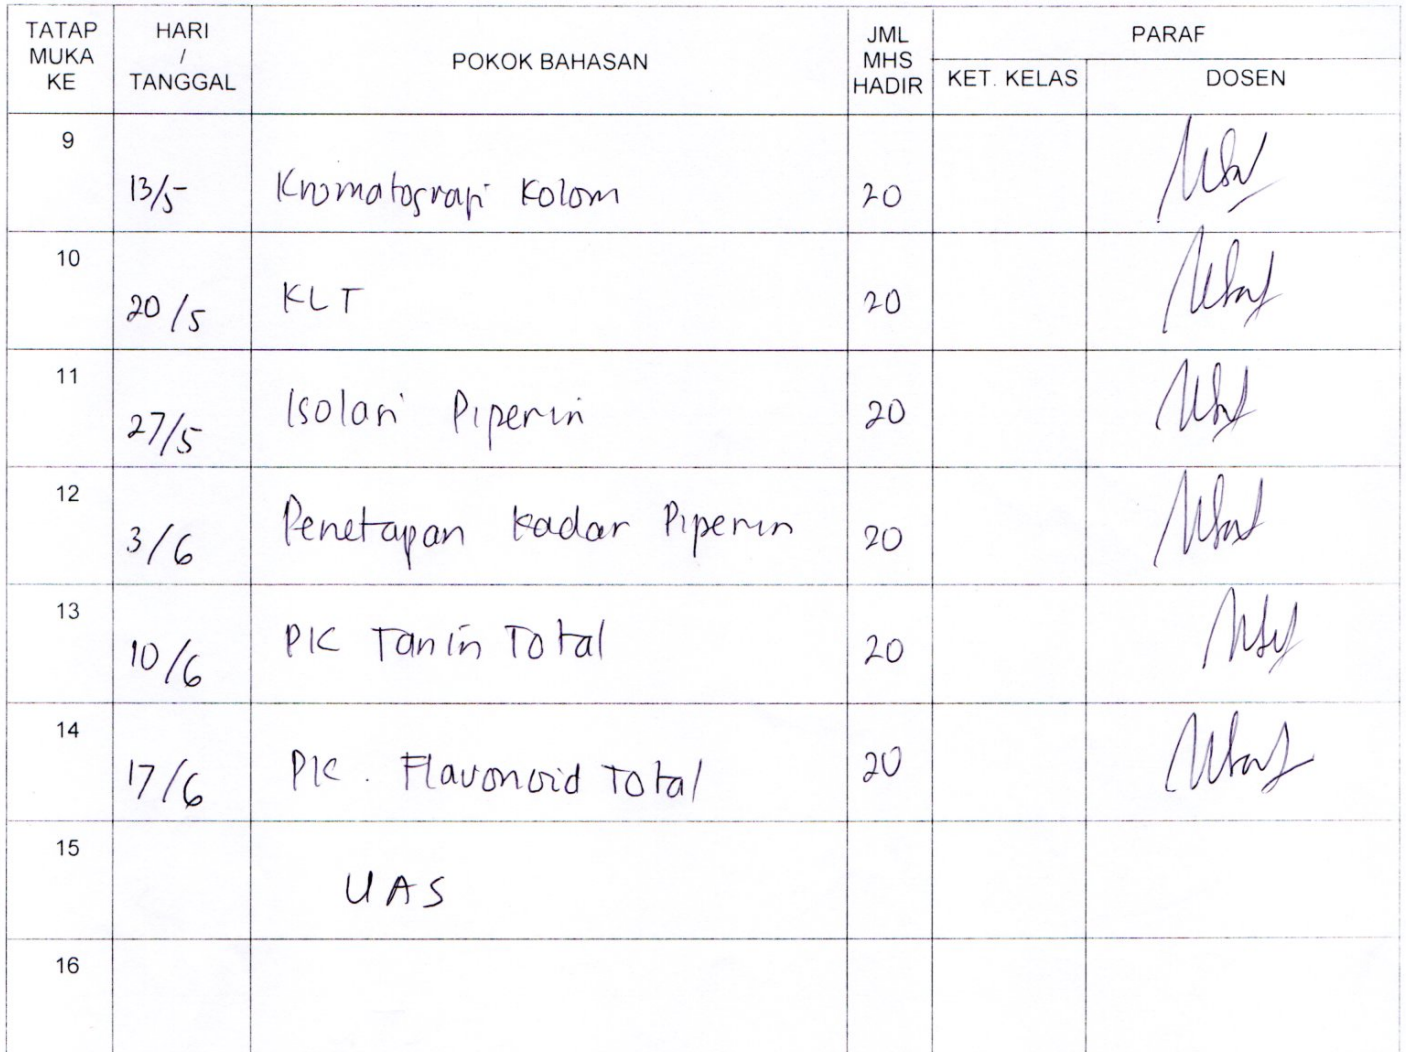 TATAP MUKA KE HARI / TANGGAL POKOK BAHASAN JML MHS HADIR PARAF
KET. KELAS DOSEN
9 13/5 Kromatografi Kolom 20
10 20/5 KLT 20
11 27/5 Isolasi Piperin 20
12 3/6 Penetapan Kadar Piperin 20
13 10/6 PK Tanin Total 20
14 17/6 PK. Flavonoid Total 20
15 UAS
16